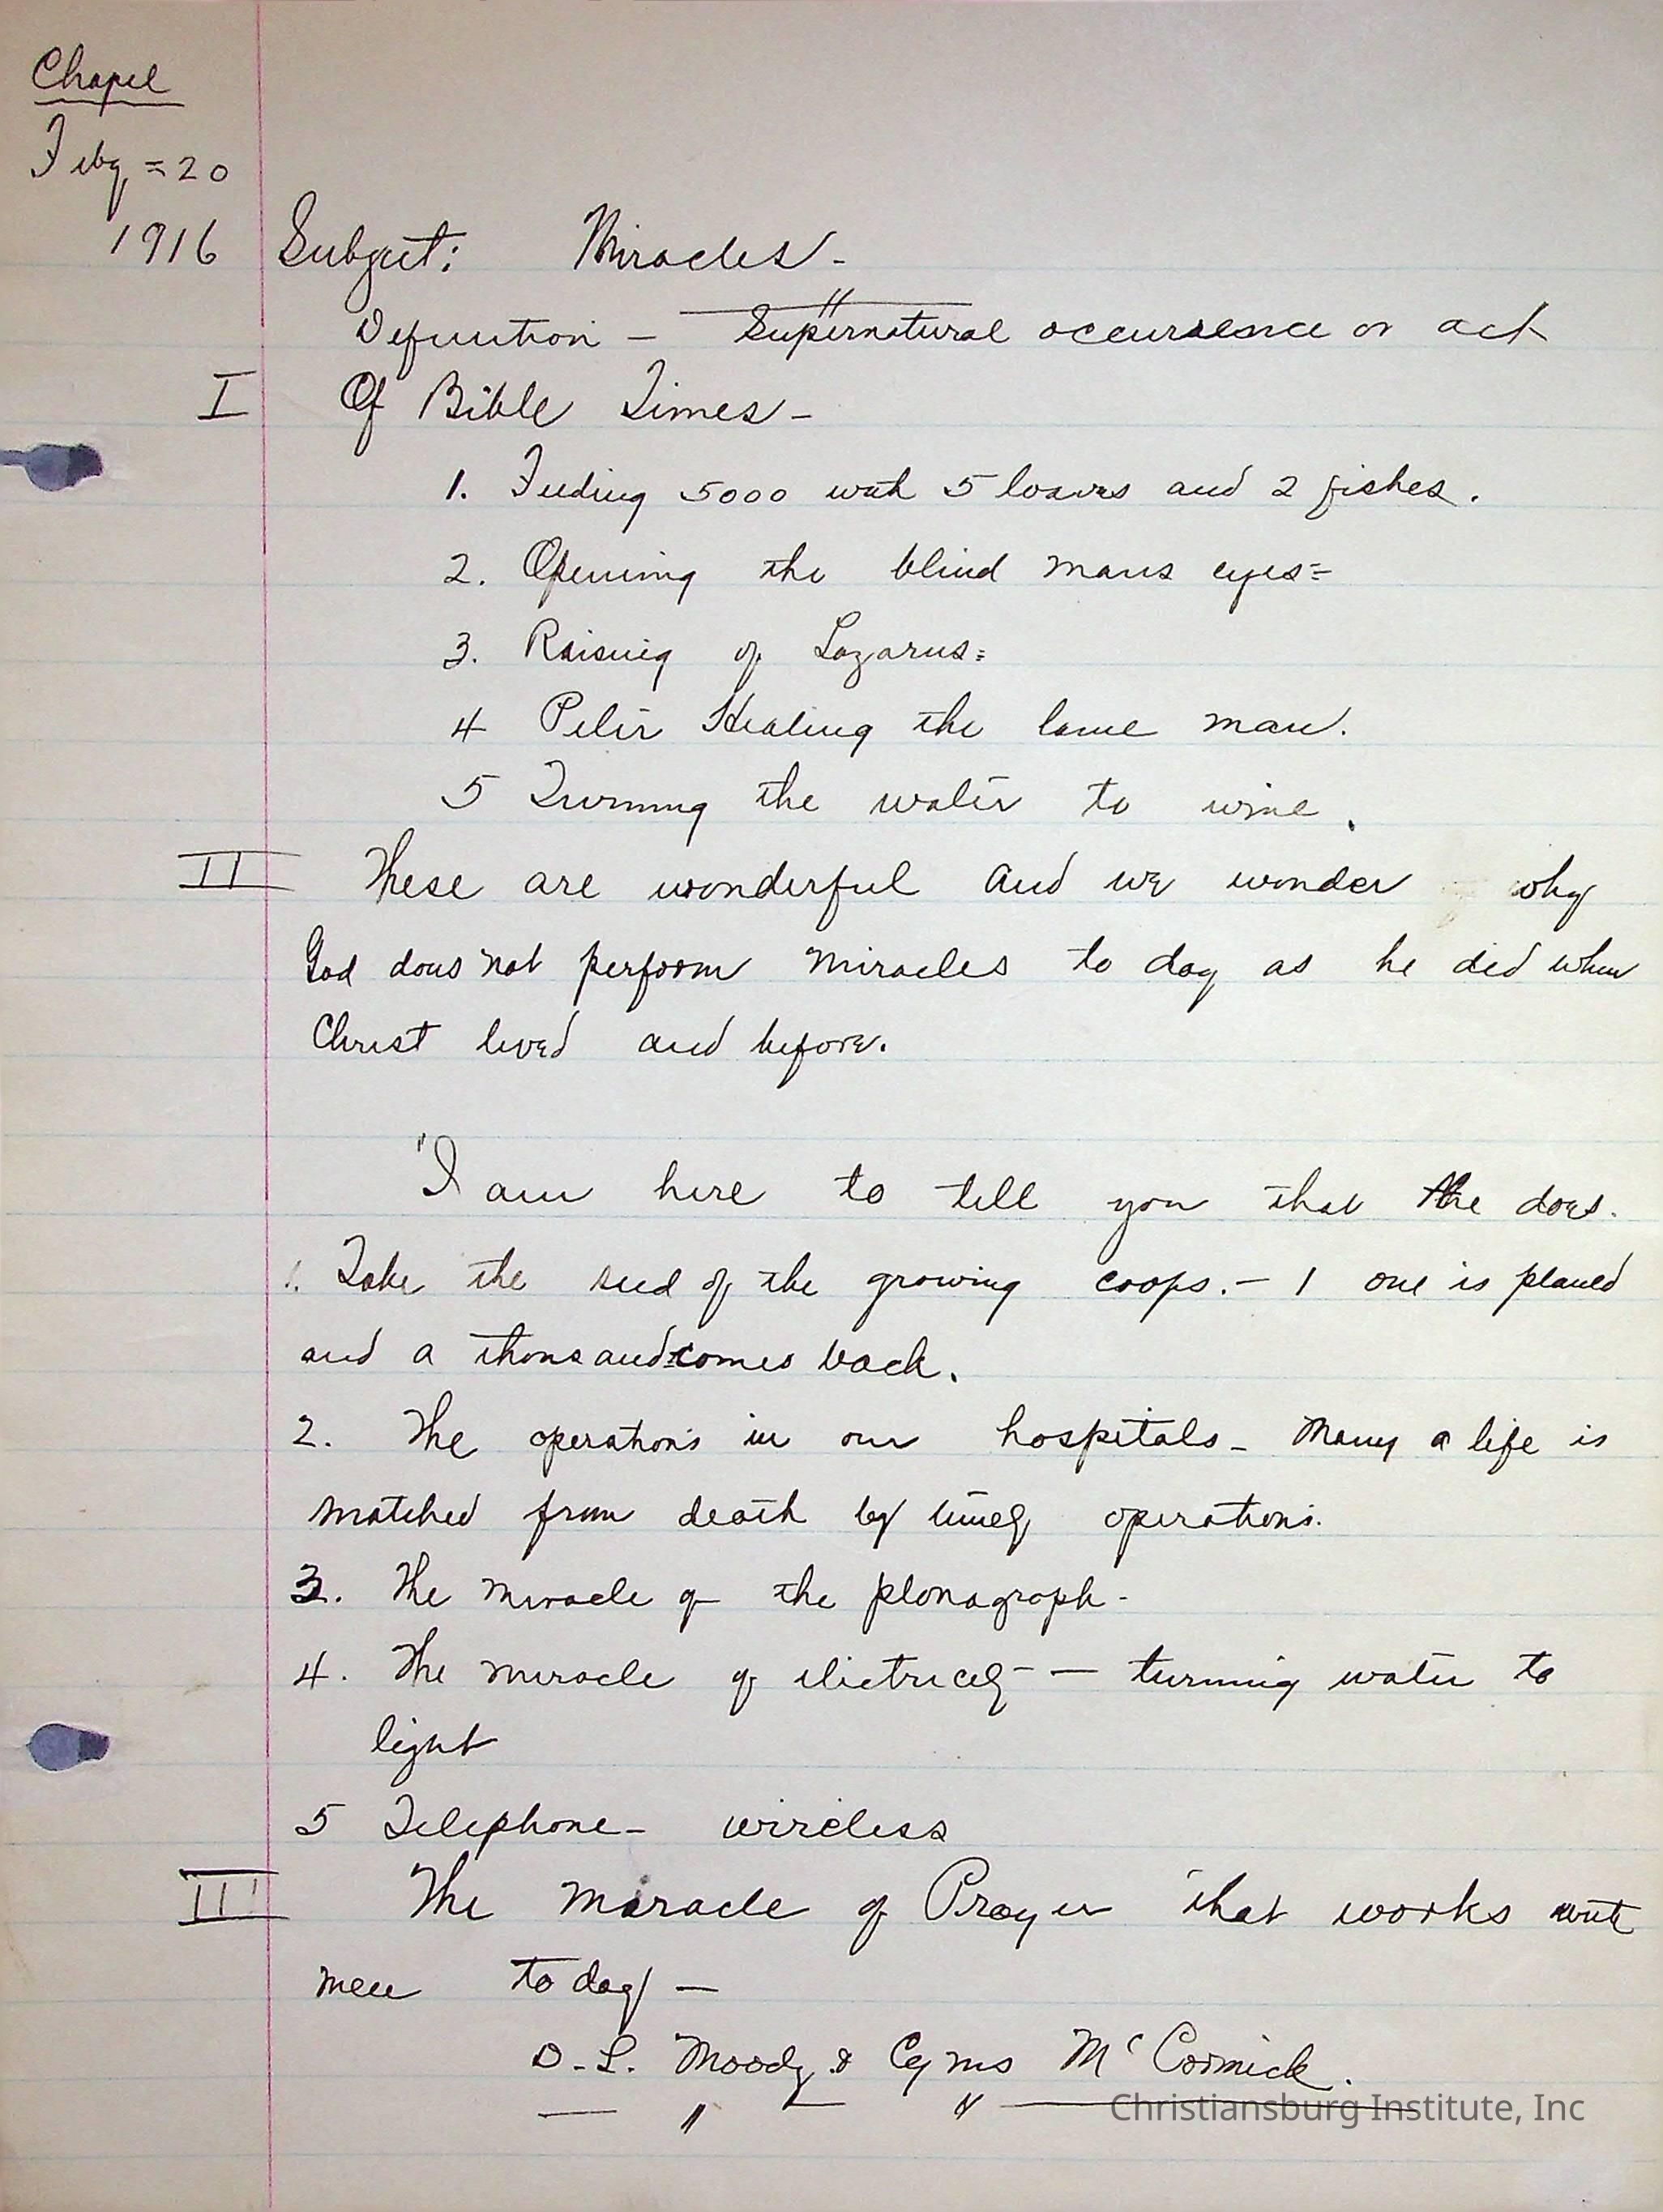 Chapel
Feby = 20
1916 Subject: Miracles -
Definition - Supernatural occurrence or act
I Of Bible Times -
1. Feeding 5000 with 5 loaves and 2 fishes.
2. Opening the blind mans eyes =
3. Raising of Lazarus =
4 Peter Healing the lame man.
5 Turning the water to wine.
II These are wonderful and we wonder why
God does not perform miracles to day as he did when
Christ lived and before.
"I am here to tell you that He does.
1. Take the seed of the growing coops. - 1 one is planed
and a thousand comes back.
2. The operations in our hospitals - Many a life is
snatched from death by timely operations.
3. The miracle of the plonagraph -
4. The miracle of electricity - — turning water to
light
5 Telephone - wireless
III The Miracle of Prayer that works with
men to day —
D. L. Moody & Cyrus McCormick.
Christiansburg Institute, Inc